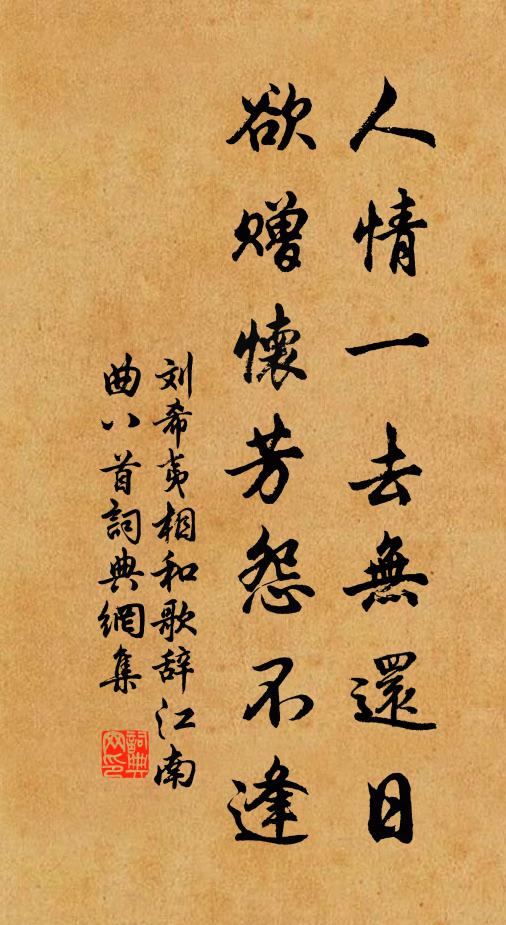 人情一去無還日
欲贈懷芳怨不逢
刘希夷相和歌辞江南
曲八首詞典網集
詞典網印